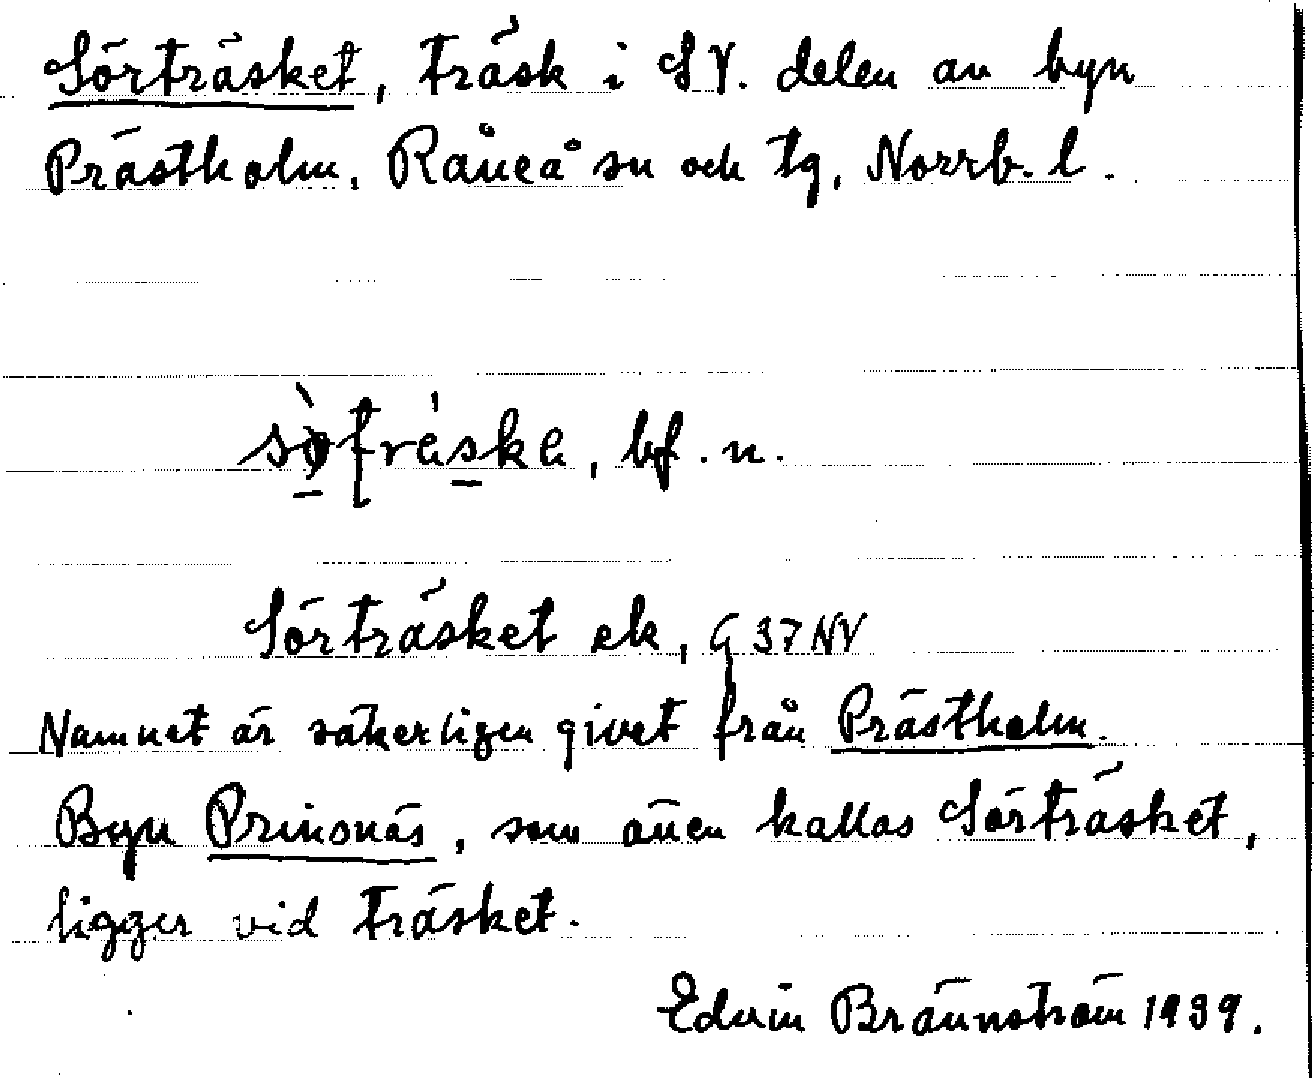 Sörträsket, träsk i SV. delen av byn
Prästholm, Råneå sn och tg, Norrb. l.
bf. n.
Sörträsket ek, G 37 NV
Namnet är säkerligen givet från Prästholm.
Byn Prinsnäs, som även kallas Sörträsket,
ligger vid träsket.
Edvin Brännström 1939.